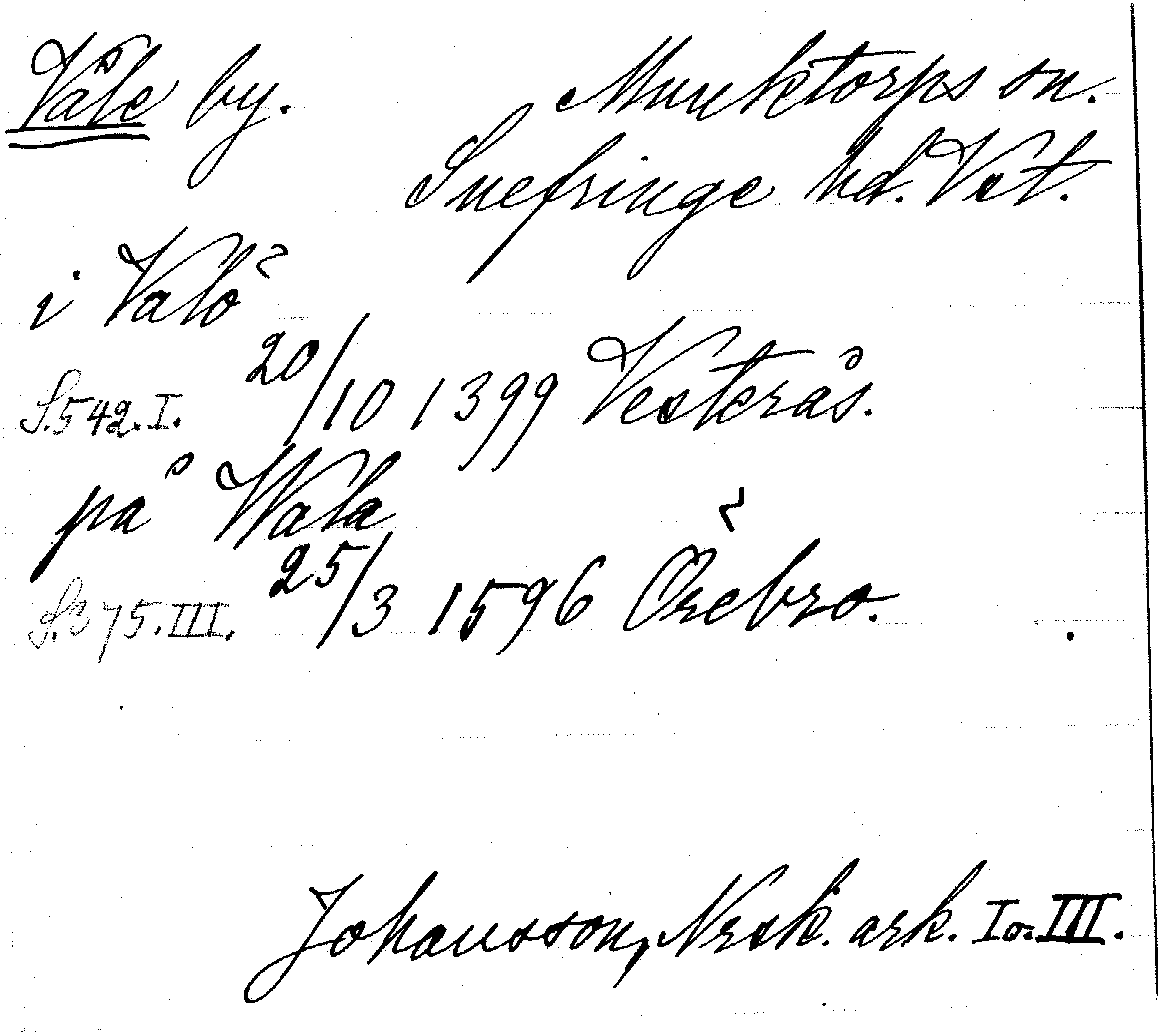 Våle by. Munktorps sn.
Snefringe hd. Vst.
i Valö
S. 542. I. 20/10 1399 Vesterås.
på Wala
S. 375. III. 25/3 1596 Örebro.
Johansson, Nrsk. ark. I o. III.